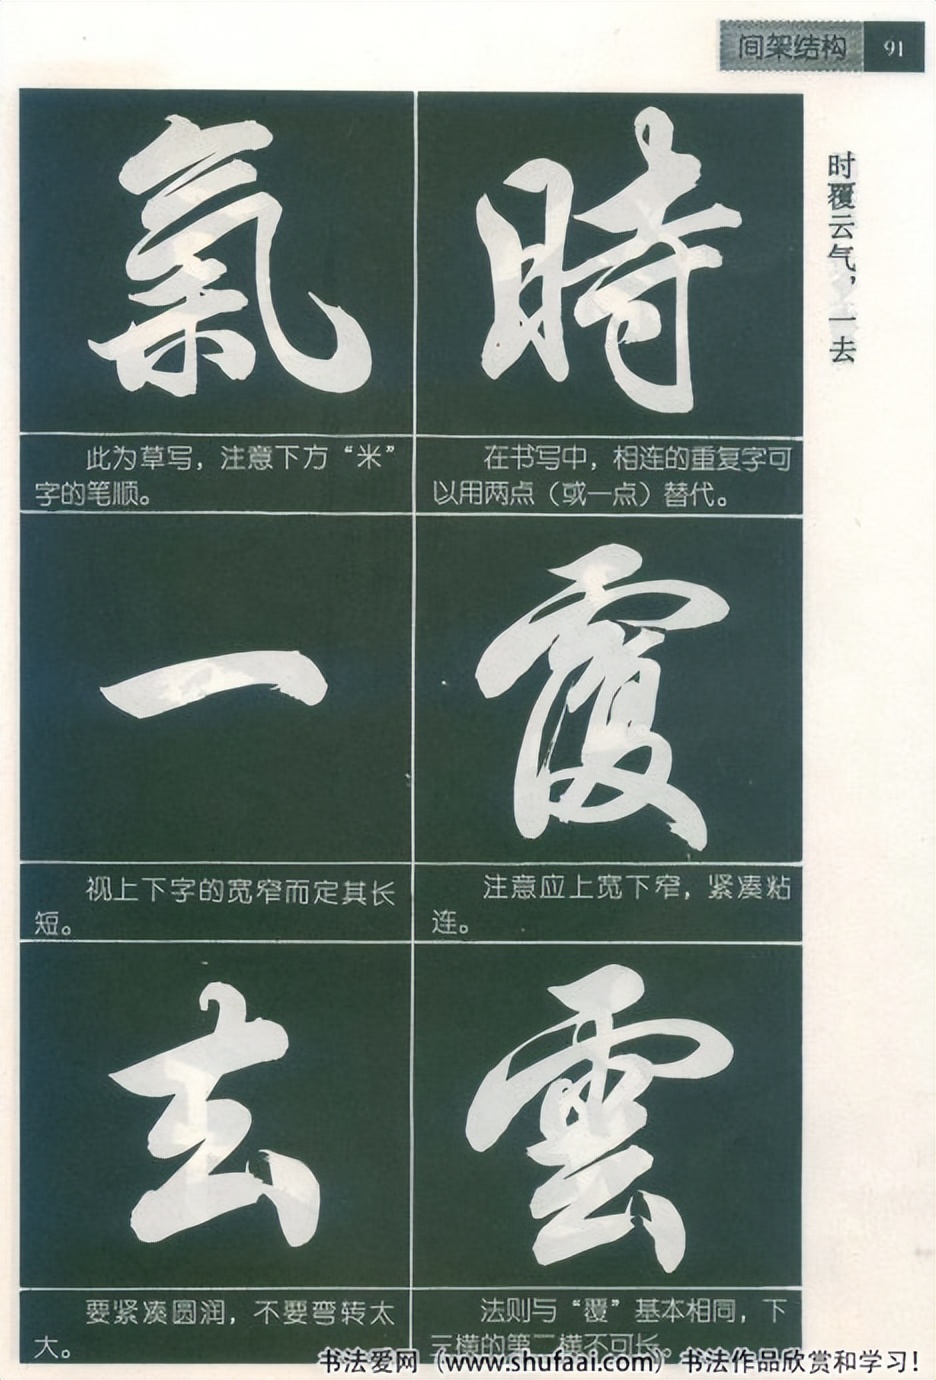 间架结构 91
时覆云气，一去
時
在书写中，相连的重复字可
以用两点（或一点）替代。
覆
注意应上宽下窄，紧凑粘
连。
雲
法则与“覆”基本相同，下
三横的第二横不可长。
氣
此为草写，注意下方“米”
字的笔顺。
一
视上下字的宽窄而定其长
短。
去
要紧凑圆润，不要弯转太
大。
书法爱网（www.shufaai.com）书法作品欣赏和学习！